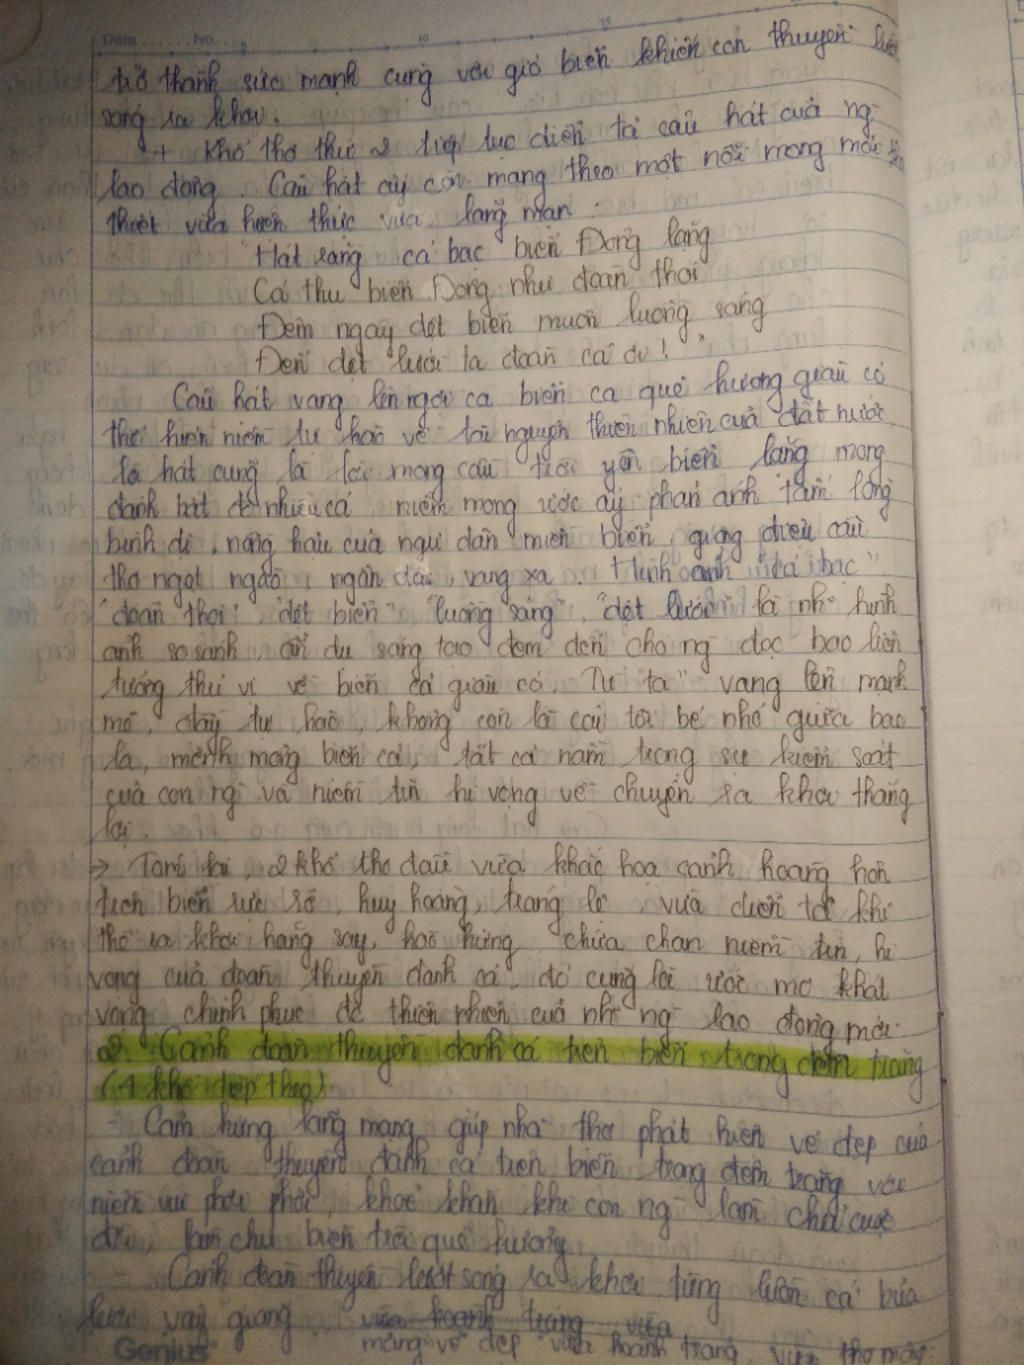 Date ...... No. ...
trở thành sức mạnh cùng với gió biển khiến con thuyền lướt
sóng ra khơi.
+ Khổ thơ thứ 2 tiếp tục diễn tả câu hát của ng
lao động. Câu hát ấy còn mang theo một nỗi mong mỏi
thiết vừa hiện thực vừa lãng mạn:
"Hát rằng cá bạc biển Đông lặng
Cá thu biển Đông như đoàn thoi
Đêm ngày dệt biển muôn luồng sáng
Đến dệt lưới ta đoàn cá ơi!"
Câu hát vang lên ngợi ca biển ca quê hương giàu có
thể hiện niềm tự hào về tài nguyên thiên nhiên của đất nước
là hát cũng là lời mong cầu trời yên biển lặng mong
đánh bắt đc nhiều cá. niềm mong ước ấy phản ánh tấm lòng
bình dị, nồng hậu của ngư dân miền biển, giọng điệu câu
thơ ngọt ngào, ngân dài, vang xa. Hình ảnh "cá bạc"
"đoàn thoi" "dệt biển" "luồng sáng", "dệt lưới" là nh~ hình
ảnh so sánh, ẩn dụ sáng tạo đem đến cho ng đọc bao liên
tưởng thú vị về biển cả giàu có. Từ "ta" vang lên mạnh
mẽ, đầy tự hào, không còn là cái tôi bé nhỏ giữa bao
la, mênh mông biển cả, tất cả nằm trong sự kiểm soát
của con ng và niềm tin hi vọng về chuyến ra khơi thắng
lợi.
→ Tóm lại, 2 khổ thơ đầu vừa khắc họa cảnh hoàng hôn
trên biển rực rỡ, huy hoàng, tráng lệ, vừa diễn tả khí
thế ra khơi hăng say, hào hứng chứa chan niềm tin, hi
vọng của đoàn thuyền đánh cá. đó cũng là ước mơ khát
vọng chinh phục đc thiên nhiên của nh~ ng lao động mới.
2. Cảnh đoàn thuyền đánh cá trên biển trong đêm trăng
(4 khổ tiếp theo)
- Cảm hứng lãng mạng giúp nhà thơ phát hiện vẻ đẹp của
cảnh đoàn thuyền đánh cá trên biển trong đêm trăng với
niềm vui phơi phới, khoẻ khoắn khi con ng làm chủ cuộc
đời, làm chủ biển trời quê hương
- Cảnh đoàn thuyền lướt sóng ra khơi từng luồn cá bủa
lưới vây giăng vừa hoành tráng vừa
mang vẻ đẹp vừa hoành tráng, vừa thơ mộng
Genius